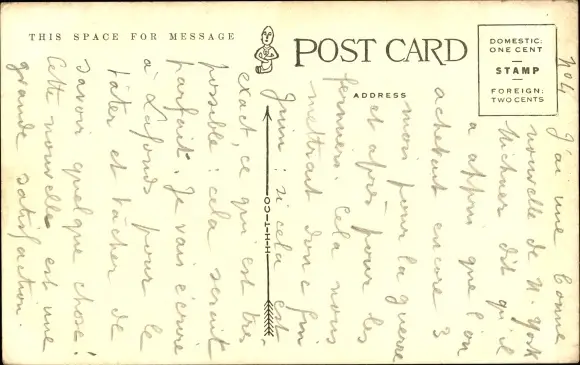 THIS SPACE FOR MESSAGE
POST CARD
ADDRESS
DOMESTIC:
ONE CENT
STAMP
FOREIGN:
TWO CENTS
CO-T-H-H
No 4
J'ai une bonne
nouvelle de N. York
dit qu'il
a appris que l'on
achetait encore 3
mois pour la guerre
et après pour les
fermiers. Cela nous
mettrait donc fin
Juin : si cela est
exact, ce qui est très
possible : cela serait
parfait. Je vais écrire
à Lafonds pour le
tâter et tâcher de
savoir quelque chose !
Cette nouvelle est une
grande satisfaction.